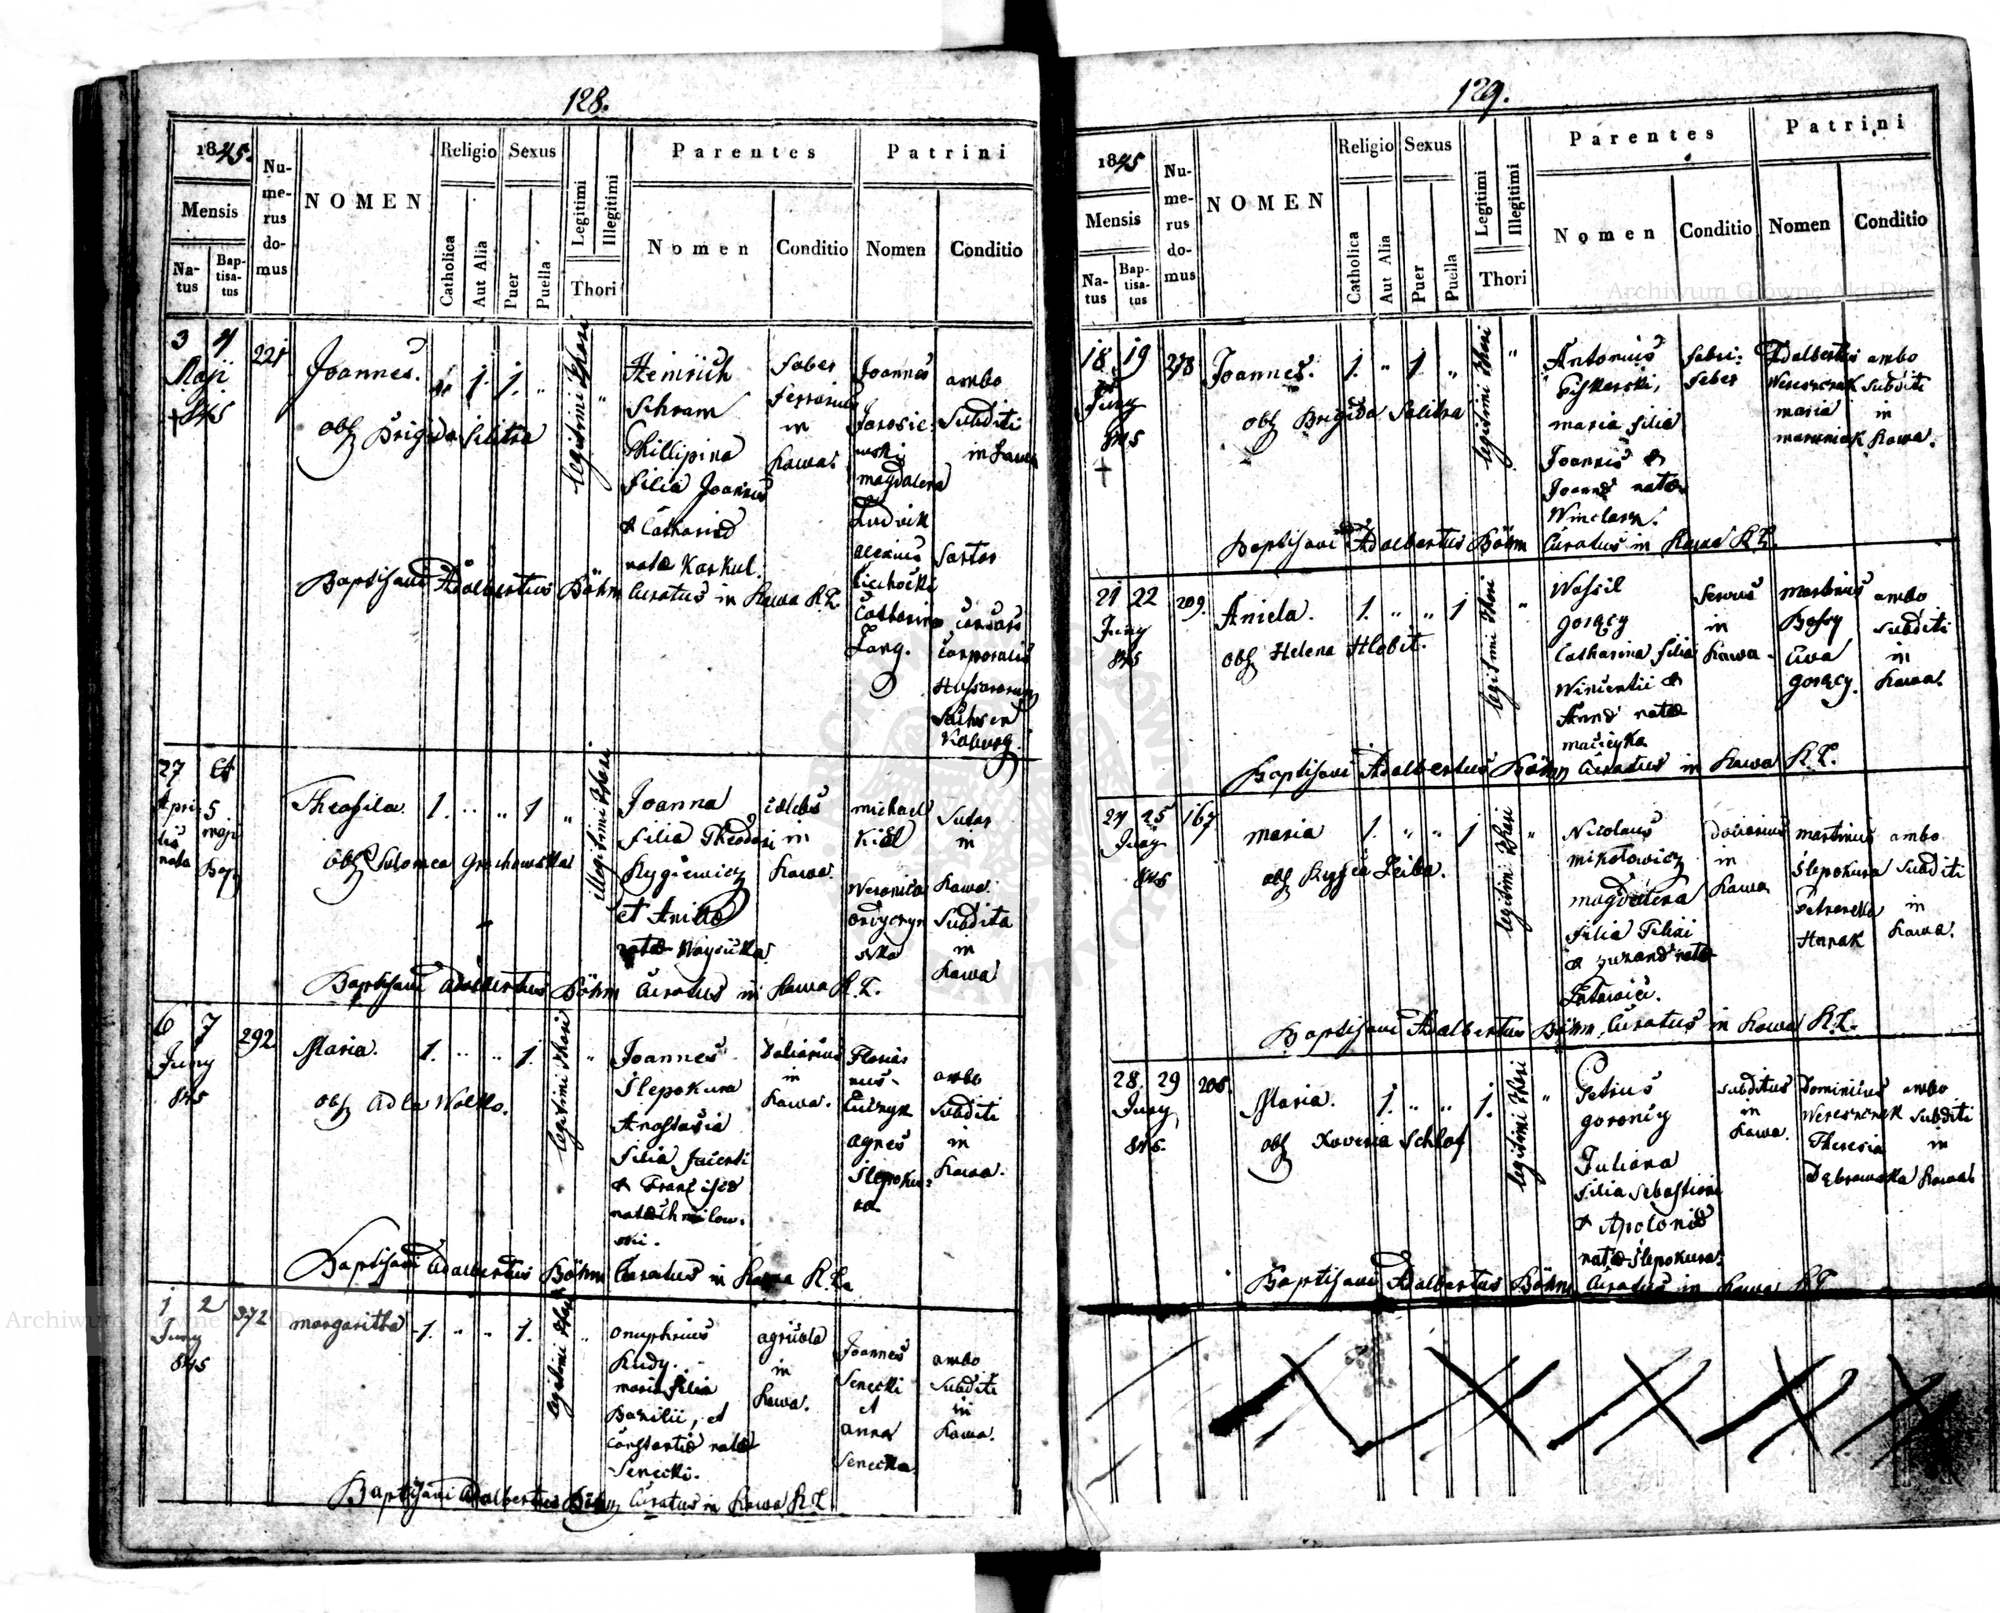 128.
1845.
Mensis
Natus
Baptisatus
Numerus domus
NOMEN
Religio
Catholica
Aut Alia
Sexus
Puer
Puella
Legitimi
Illegitimi
Thori
Parentes
Nomen
Conditio
Patrini
Nomen
Conditio
3 4
Maji
845
221
Joannes.
1. 1. "
obs Brigida Salitra
legitimi thori
Heinrich
Schram
Phillipina
filia Joannis
& Catharinæ
natæ Karkul.
faber
ferrarius
in
Kawa.
Joannes
Jarosie-
wski
Magdalena
Ludwik
Alexius
Ciechocki
Catharina
Lang.
ambo
Subditi
in Kawa
Sartor
Corporalis
Hussarorum
Sachsen
Koburg.
Baptisavi Adalbertus Böhm Curatus in Kawa R.L.
27
Aprilis
nata
et
5
maji
Bap
Theofila. 1. " " 1 "
obs Salomea Grochowska
illegitimi thori
Joanna
filia Theodori
Hygiewicz
et Anillæ
natæ Woyciicka.
in
Kawa.
michael
Kiel
Weronica
Sutor
in
Kawa.
Subdita
in
Kawa
Baptisavi Adalbertus Böhm Curatus in Kawa R.L.
6 7
Juny
845
292
Maria. 1. " " 1. "
obs Adla Wolko.
legitimi thori
Joannes
Ślepokura
Anastasia
filia Jacenti
& Francisca
natæ Chmilow-
ski.
Doliarius
in
Kawa.
Florianus
Agnes
Ślepoku-
ra
ambo
Subditi
in
Kawa.
Baptisavi Adalbertus Böhm Curatus in Kawa R.L.
1 2
Juny
845
372
margaritha 1. " " 1. "
legitimi thori
onuphrius
Rudy.
maria filia
Bazilii, et
Constantiæ natæ
Senecki.
agricola
in
Kawa.
Joannes
Senecki
et
anna
Senecka
ambo
Subditi
in
Kawa.
Baptisavi Adalbertus Böhm Curatus in Kawa R.L.
129.
1845
Mensis
Natus
Baptisatus
Numerus domus
NOMEN
Religio
Catholica
Aut Alia
Sexus
Puer
Puella
Legitimi
Illegitimi
Thori
Parentes
Nomen
Conditio
Patrini
Nomen
Conditio
18 19
Juny
845
278
Joannes. 1. " 1 "
obs Brigida Salitra
legitimi thori "
Antonius
Piskorski,
maria filia
Joannis &
Joannæ natæ
Winclarz.
Adalbertus
Wereszczak
maria
marciniak
ambo
Subditi
in
Kawa.
Baptisavi Adalbertus Böhm Curatus in Kawa R.L.
21 22
Juny
845
209.
Aniela. 1. " " 1 "
obs Helena Hlobit.
legitimi thori
Wassil
Gorący
Catharina filia
Wincentii &
Annæ natæ
macieyka
Servus
in
Kawa.
martinus
Ewa
Gorący.
ambo
Subditi
in
Kawa.
Baptisavi Adalbertus Böhm Curatus in Kawa R.L.
24 25
Juny
845
167
maria 1. " " 1 "
legitimi thori
Nicolaus
mikołowicz
magdalena
filia
& zuzannæ natæ
Doliarius
in
Kawa
martinus
Ślepokura
Hanak
ambo
Subditi
in
Kawa.
Baptisavi Adalbertus Böhm Curatus in Kawa R.L.
28. 29
Juny
845.
Maria. 1. " " 1. "
obs Xaveria Schlaf
legitimi thori
Petrus
goroncy
Juliana
filia Sebastiani
& Apoloniæ
natæ Ślepokura.
Subditus
in
Kawa.
Dominicus
Wereszczak
Theresia
Dąbrowska
ambo
Subditi
in
Kawa
Baptisavi Adalbertus Böhm Curatus in Kawa R.L.
Archiwum Główne Akt Dawnych